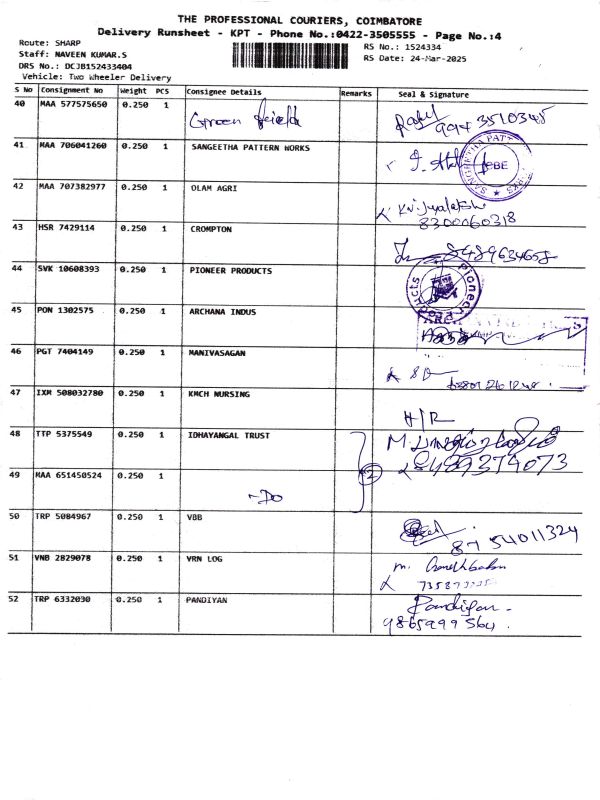 THE PROFESSIONAL COURIERS, COIMBATORE
Delivery Runsheet - KPT - Phone No.:0422-3505555 - Page No.:4
Route: SHARP
RS No.: 1524334
Staff: NAVEEN KUMAR.S
RS Date: 24-Mar-2025
DRS No.: DCJB152433404
Vehicle: Two Wheeler Delivery
S No Consignment No Weight PCS Consignee Details Remarks Seal & Signature
40 MAA 577575650 0.250 1 Green field
41 MAA 706041260 0.250 1 SANGEETHA PATTERN WORKS
42 MAA 707382977 0.250 1 OLAM AGRI
8300060318
43 HSR 7429114 0.250 1 CROMPTON
8489634658
44 SVK 10608393 0.250 1 PIONEER PRODUCTS
Pioneer
45 PON 1302575 0.250 1 ARCHANA INDUS
46 PGT 7404149 0.250 1 MANIVASAGAN
47 IXM 508032780 0.250 1 KMCH NURSING
H/R
48 TTP 5375549 0.250 1 IDHAYANGAL TRUST
8489379073
49 MAA 651450524 0.250 1 -Do 2
50 TRP 5084967 0.250 1 VBB
8754011324
51 VNB 2829078 0.250 1 VRN LOG
52 TRP 6332030 0.250 1 PANDIYAN Pandiyan
9865999564